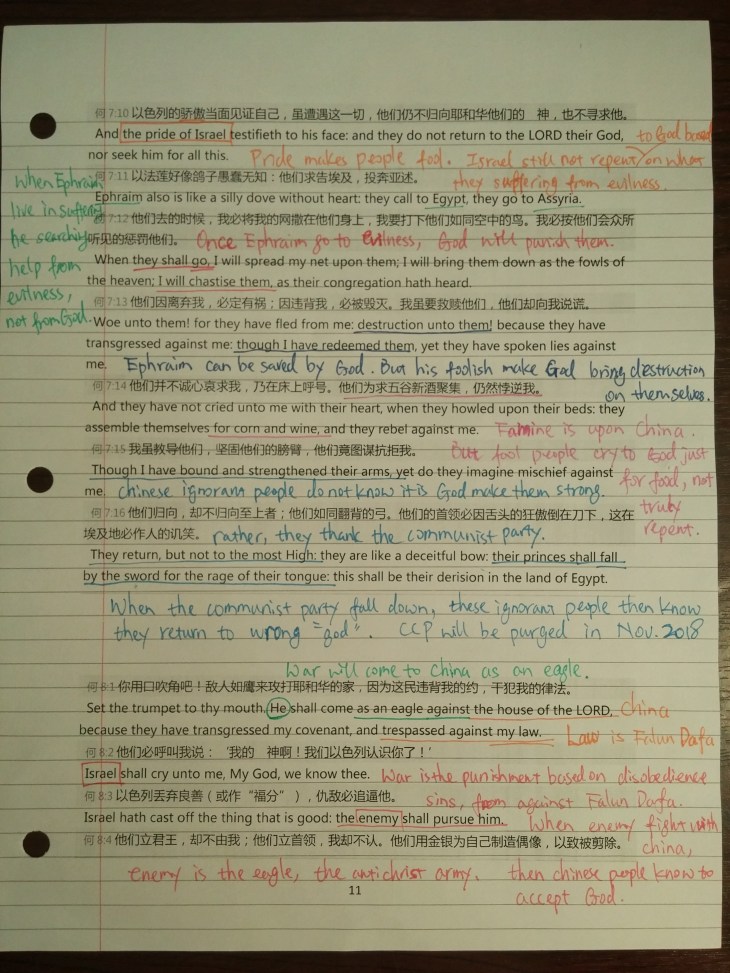 何 7:10 以色列的骄傲当面见证自己，虽遭遇这一切，他们仍不归向耶和华他们的　神，也不寻求他。
And the pride of Israel testifieth to his face: and they do not return to the LORD their God,
to God based
nor seek him for all this.
Pride makes people fool. Israel still not repent on what
they suffering from evilness.
何 7:11 以法莲好像鸽子愚蠢无知：他们求告埃及，投奔亚述。
Ephraim also is like a silly dove without heart: they call to Egypt, they go to Assyria.
When Ephraim
live in suffering
he searching
help from
evilness,
not from God.
何 7:12 他们去的时候，我必将我的网撒在他们身上，我要打下他们如同空中的鸟。我必按他们会众所
听见的惩罚他们。
Once Ephraim go to evilness, God will punish them.
When they shall go, I will spread my net upon them; I will bring them down as the fowls of
the heaven; I will chastise them, as their congregation hath heard.
何 7:13 他们因离弃我，必定有祸；因违背我，必被毁灭。我虽要救赎他们，他们却向我说谎。
Woe unto them! for they have fled from me: destruction unto them! because they have
transgressed against me: though I have redeemed them, yet they have spoken lies against
me.
Ephraim can be saved by God. But his foolish make God bring destruction
on themselves.
何 7:14 他们并不诚心哀求我，乃在床上呼号。他们为求五谷新酒聚集，仍然悖逆我。
And they have not cried unto me with their heart, when they howled upon their beds: they
assemble themselves for corn and wine, and they rebel against me.
Famine is upon China.
But fool people cry to God just
for food, not
truly
repent.
何 7:15 我虽教导他们，坚固他们的膀臂，他们竟图谋抗拒我。
Though I have bound and strengthened their arms, yet do they imagine mischief against
me.
chinese ignorant people do not know it is God make them strong.
何 7:16 他们归向，却不归向至上者；他们如同翻背的弓。他们的首领必因舌头的狂傲倒在刀下，这在
埃及地必作人的讥笑。
rather, they thank the communist party.
They return, but not to the most High: they are like a deceitful bow: their princes shall fall
by the sword for the rage of their tongue: this shall be their derision in the land of Egypt.
When the communist party fall down, these ignorant people then know
they return to wrong "god". CCP will be purged in Nov. 2018
War will come to China as an eagle.
何 8:1 你用口吹角吧！敌人如鹰来攻打耶和华的家，因为这民违背我的约，干犯我的律法。
Set the trumpet to thy mouth. He shall come as an eagle against the house of the LORD,
China
because they have transgressed my covenant, and trespassed against my law.
Law is Falun Dafa
何 8:2 他们必呼叫我说：‘我的　神啊！我们以色列认识你了！’
Israel shall cry unto me, My God, we know thee.
War is the punishment based on disobedience
sins, from against Falun Dafa.
何 8:3 以色列丢弃良善（或作“福分”），仇敌必追逼他。
Israel hath cast off the thing that is good: the enemy shall pursue him.
When enemy fight with
china,
then chinese people know to
accept God.
何 8:4 他们立君王，却不由我；他们立首领，我却不认。他们用金银为自己制造偶像，以致被剪除。
enemy is the eagle, the antichrist army.
11